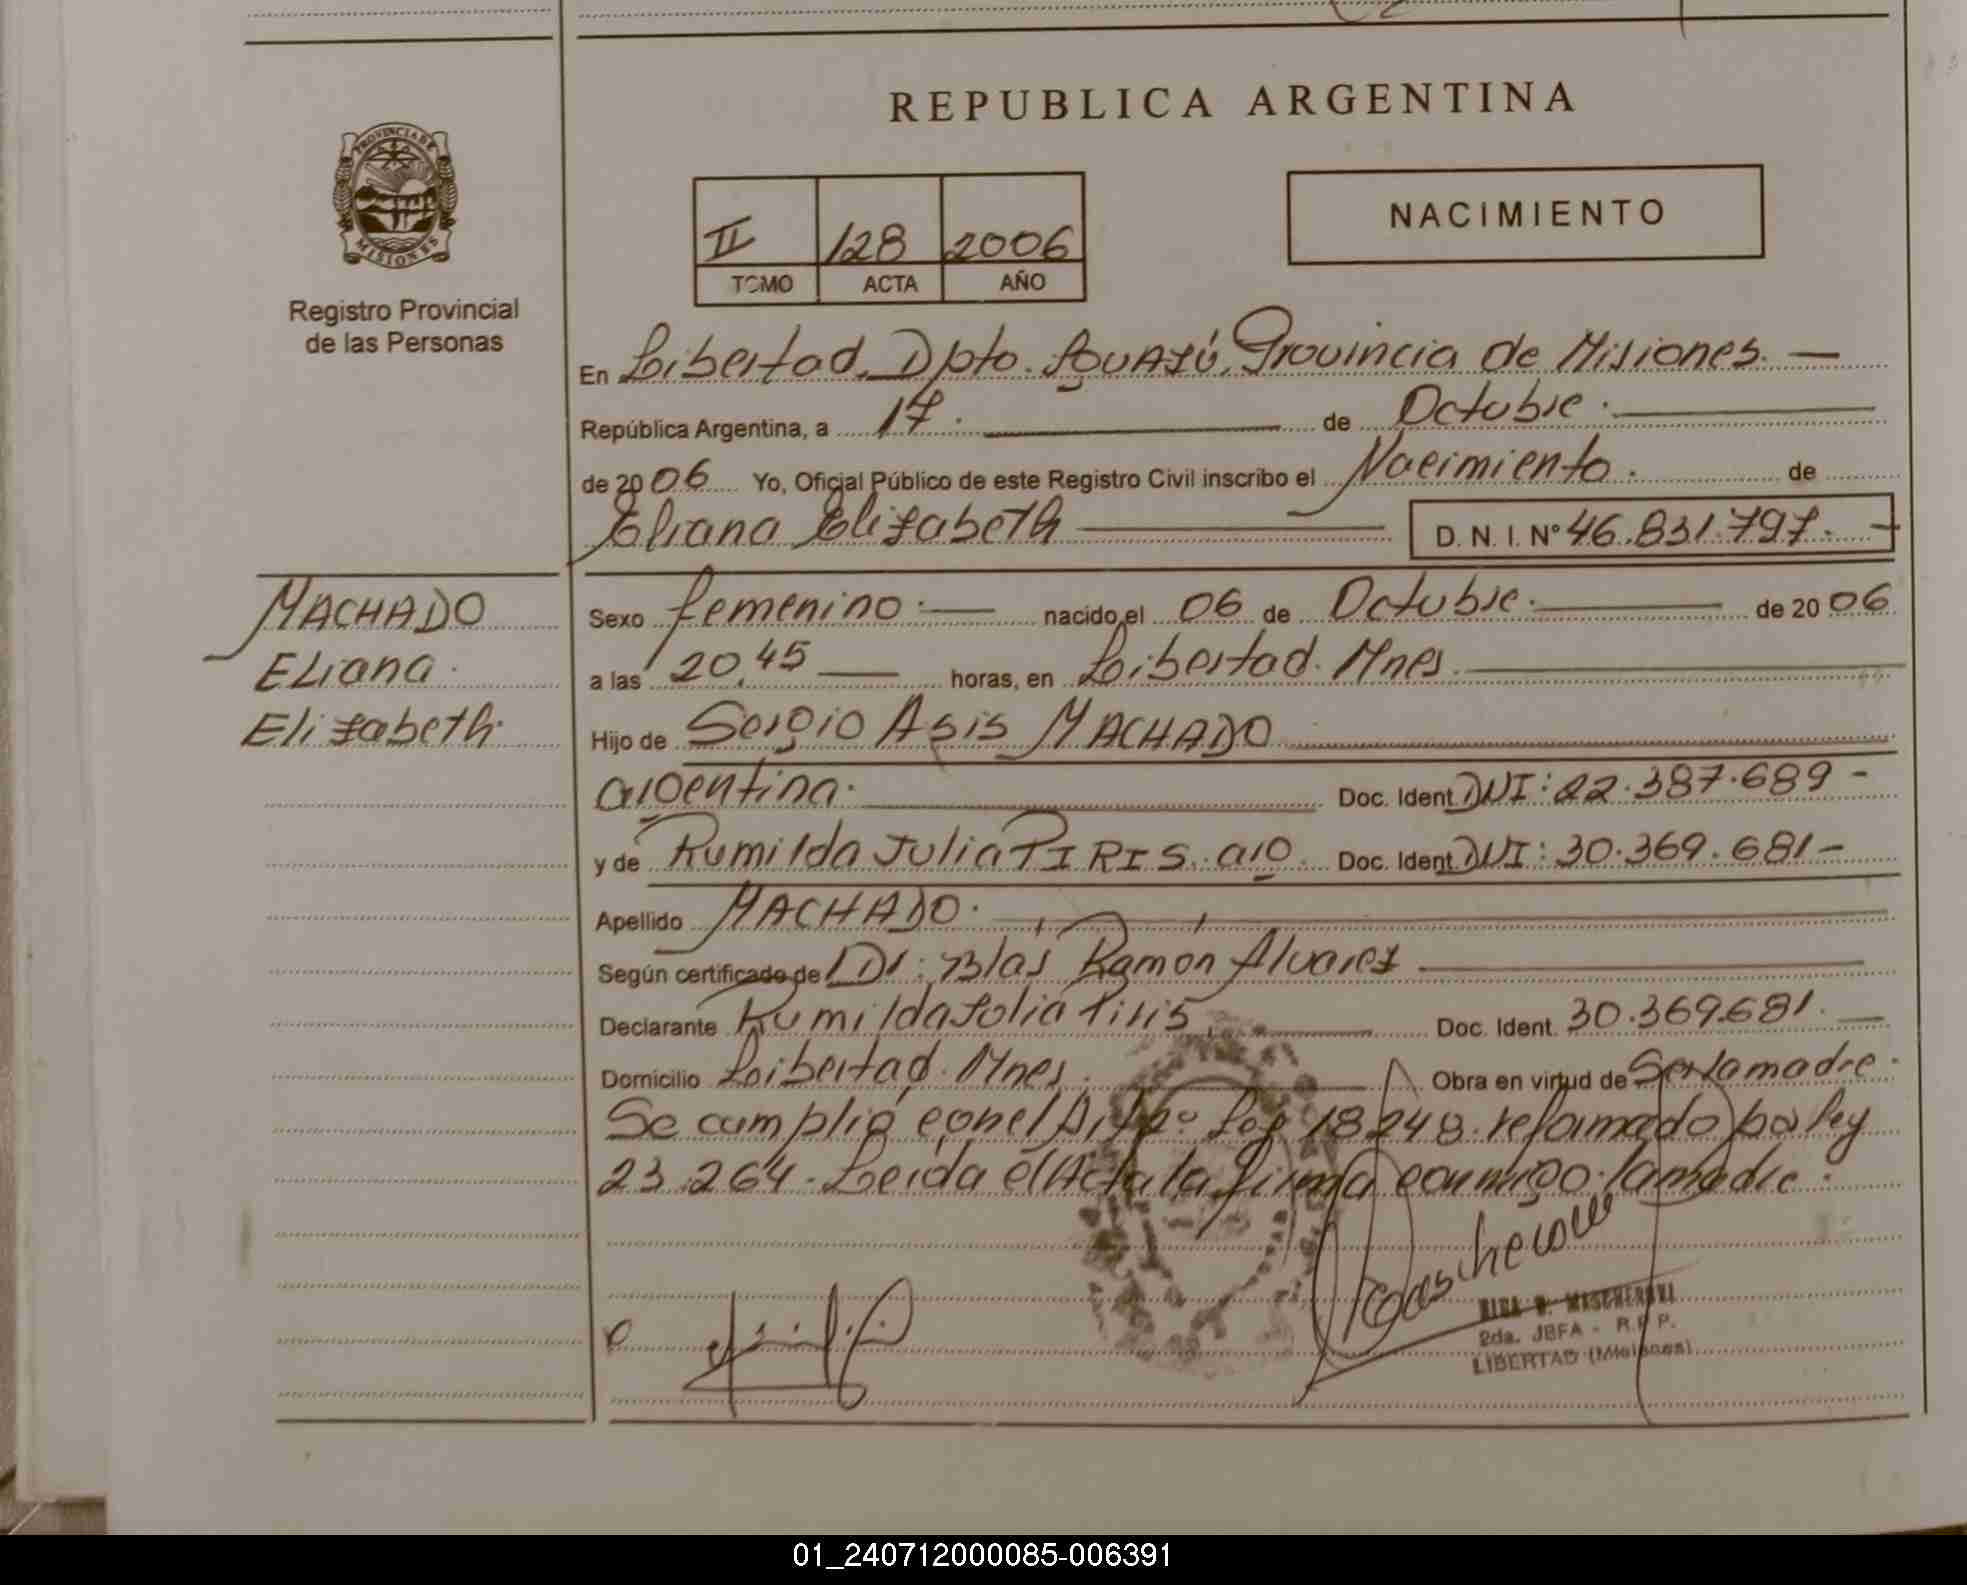 REPUBLICA ARGENTINA
PROVINCIA DE
MISIONES
Registro Provincial
de las Personas
II 128 2006
TOMO ACTA AÑO
NACIMIENTO
En Libertad, Dpto. Iguazú, Provincia de Misiones. —
República Argentina, a 17. de Octubre.
de 2006 Yo, Oficial Público de este Registro Civil inscribo el Nacimiento. de
Eliana Elizabeth D. N. I. Nº 46.831.797. -
MACHADO
Eliana.
Elizabeth.
Sexo femenino. — nacido el 06 de Octubre. de 2006
a las 20,45 — horas, en Libertad. Mnes.
Hijo de Sergio Asis MACHADO
argentina. Doc. Ident. DNI: 22.387.689 -
y de Rumilda Julia PIRIS. arg. Doc. Ident. DNI: 30.369.681 -
Apellido MACHADO.
Según certificado de Dr: Blas Ramón Alvarez
Declarante Rumilda Julia Piris Doc. Ident. 30.369.681. —
Domicilio Libertad. Mnes. Obra en virtud de Ser la madre.
Se cumplió con el 18248. reformado por ley
23.264. Leida el Acta la firma conmigo. la madre.
2da. JEFA - R.P.P.
LIBERTAD (Misiones)
01_240712000085-006391